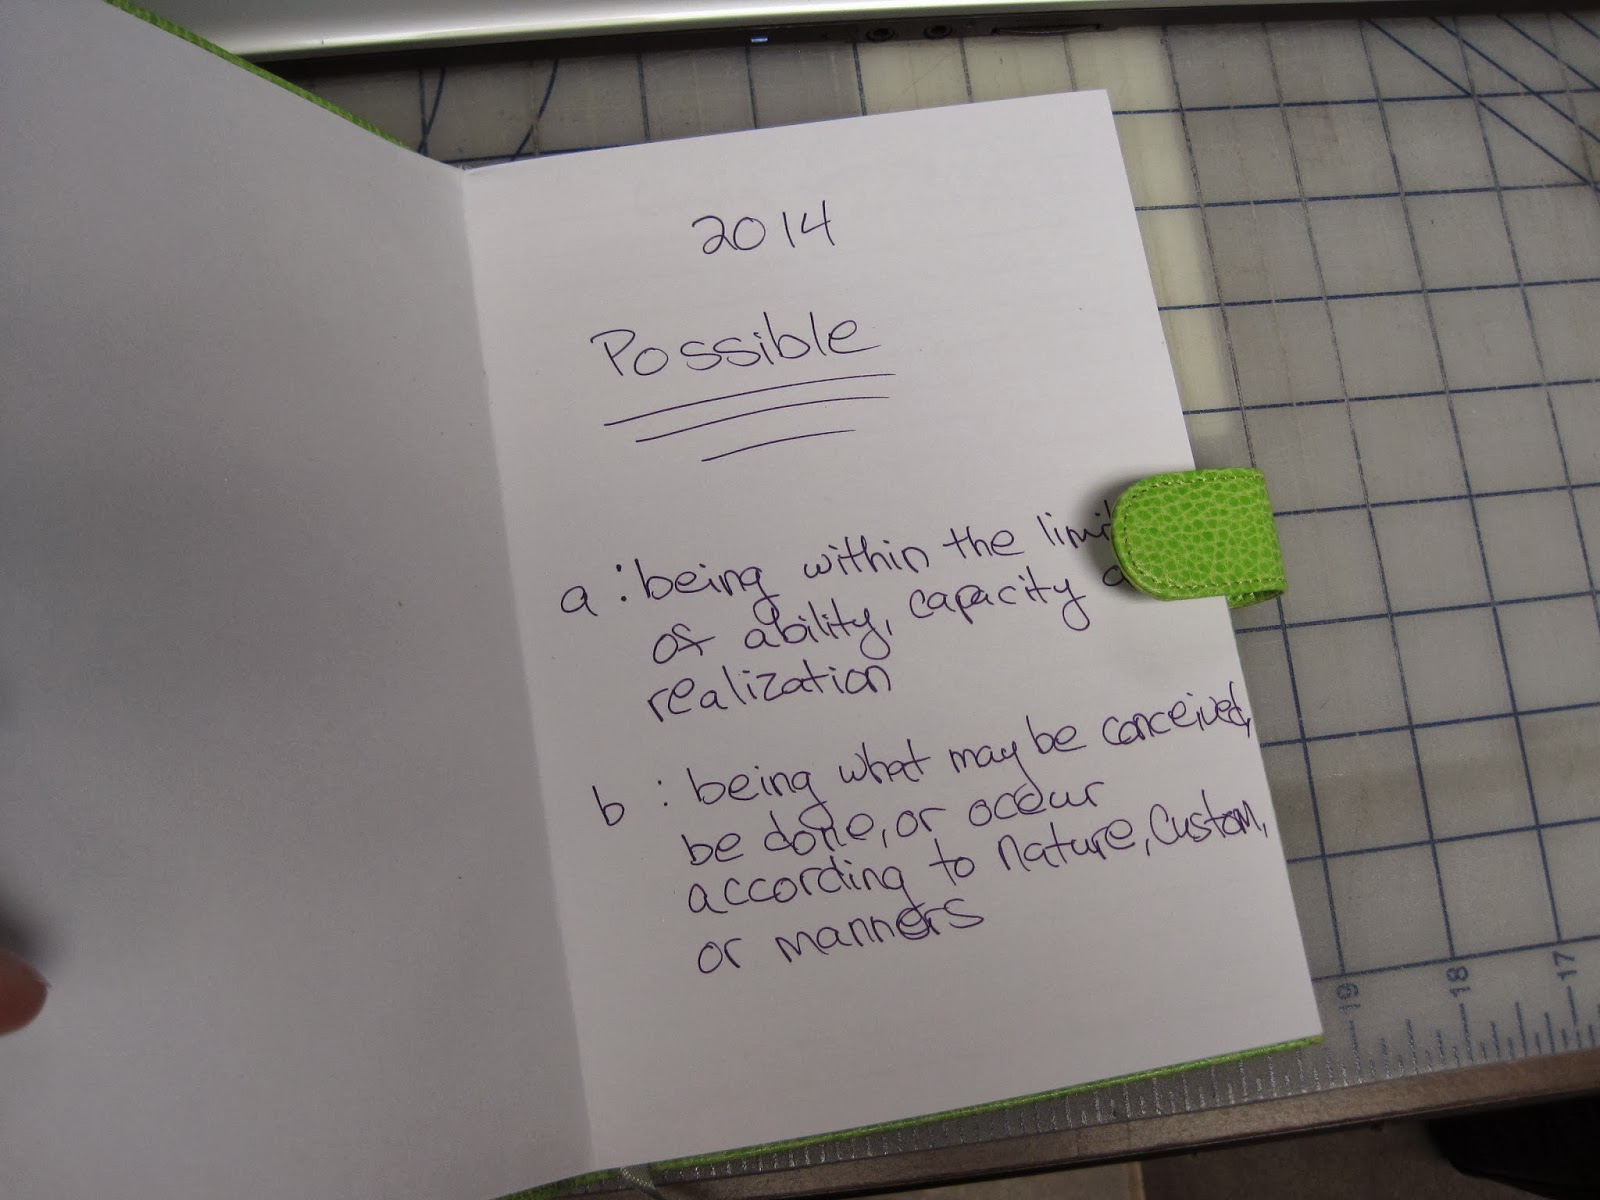 2014
Possible
a : being within the
of ability, capacity
realization
b : being what may be conceived,
be done, or occur
according to nature, custom,
or manners
19
18
17